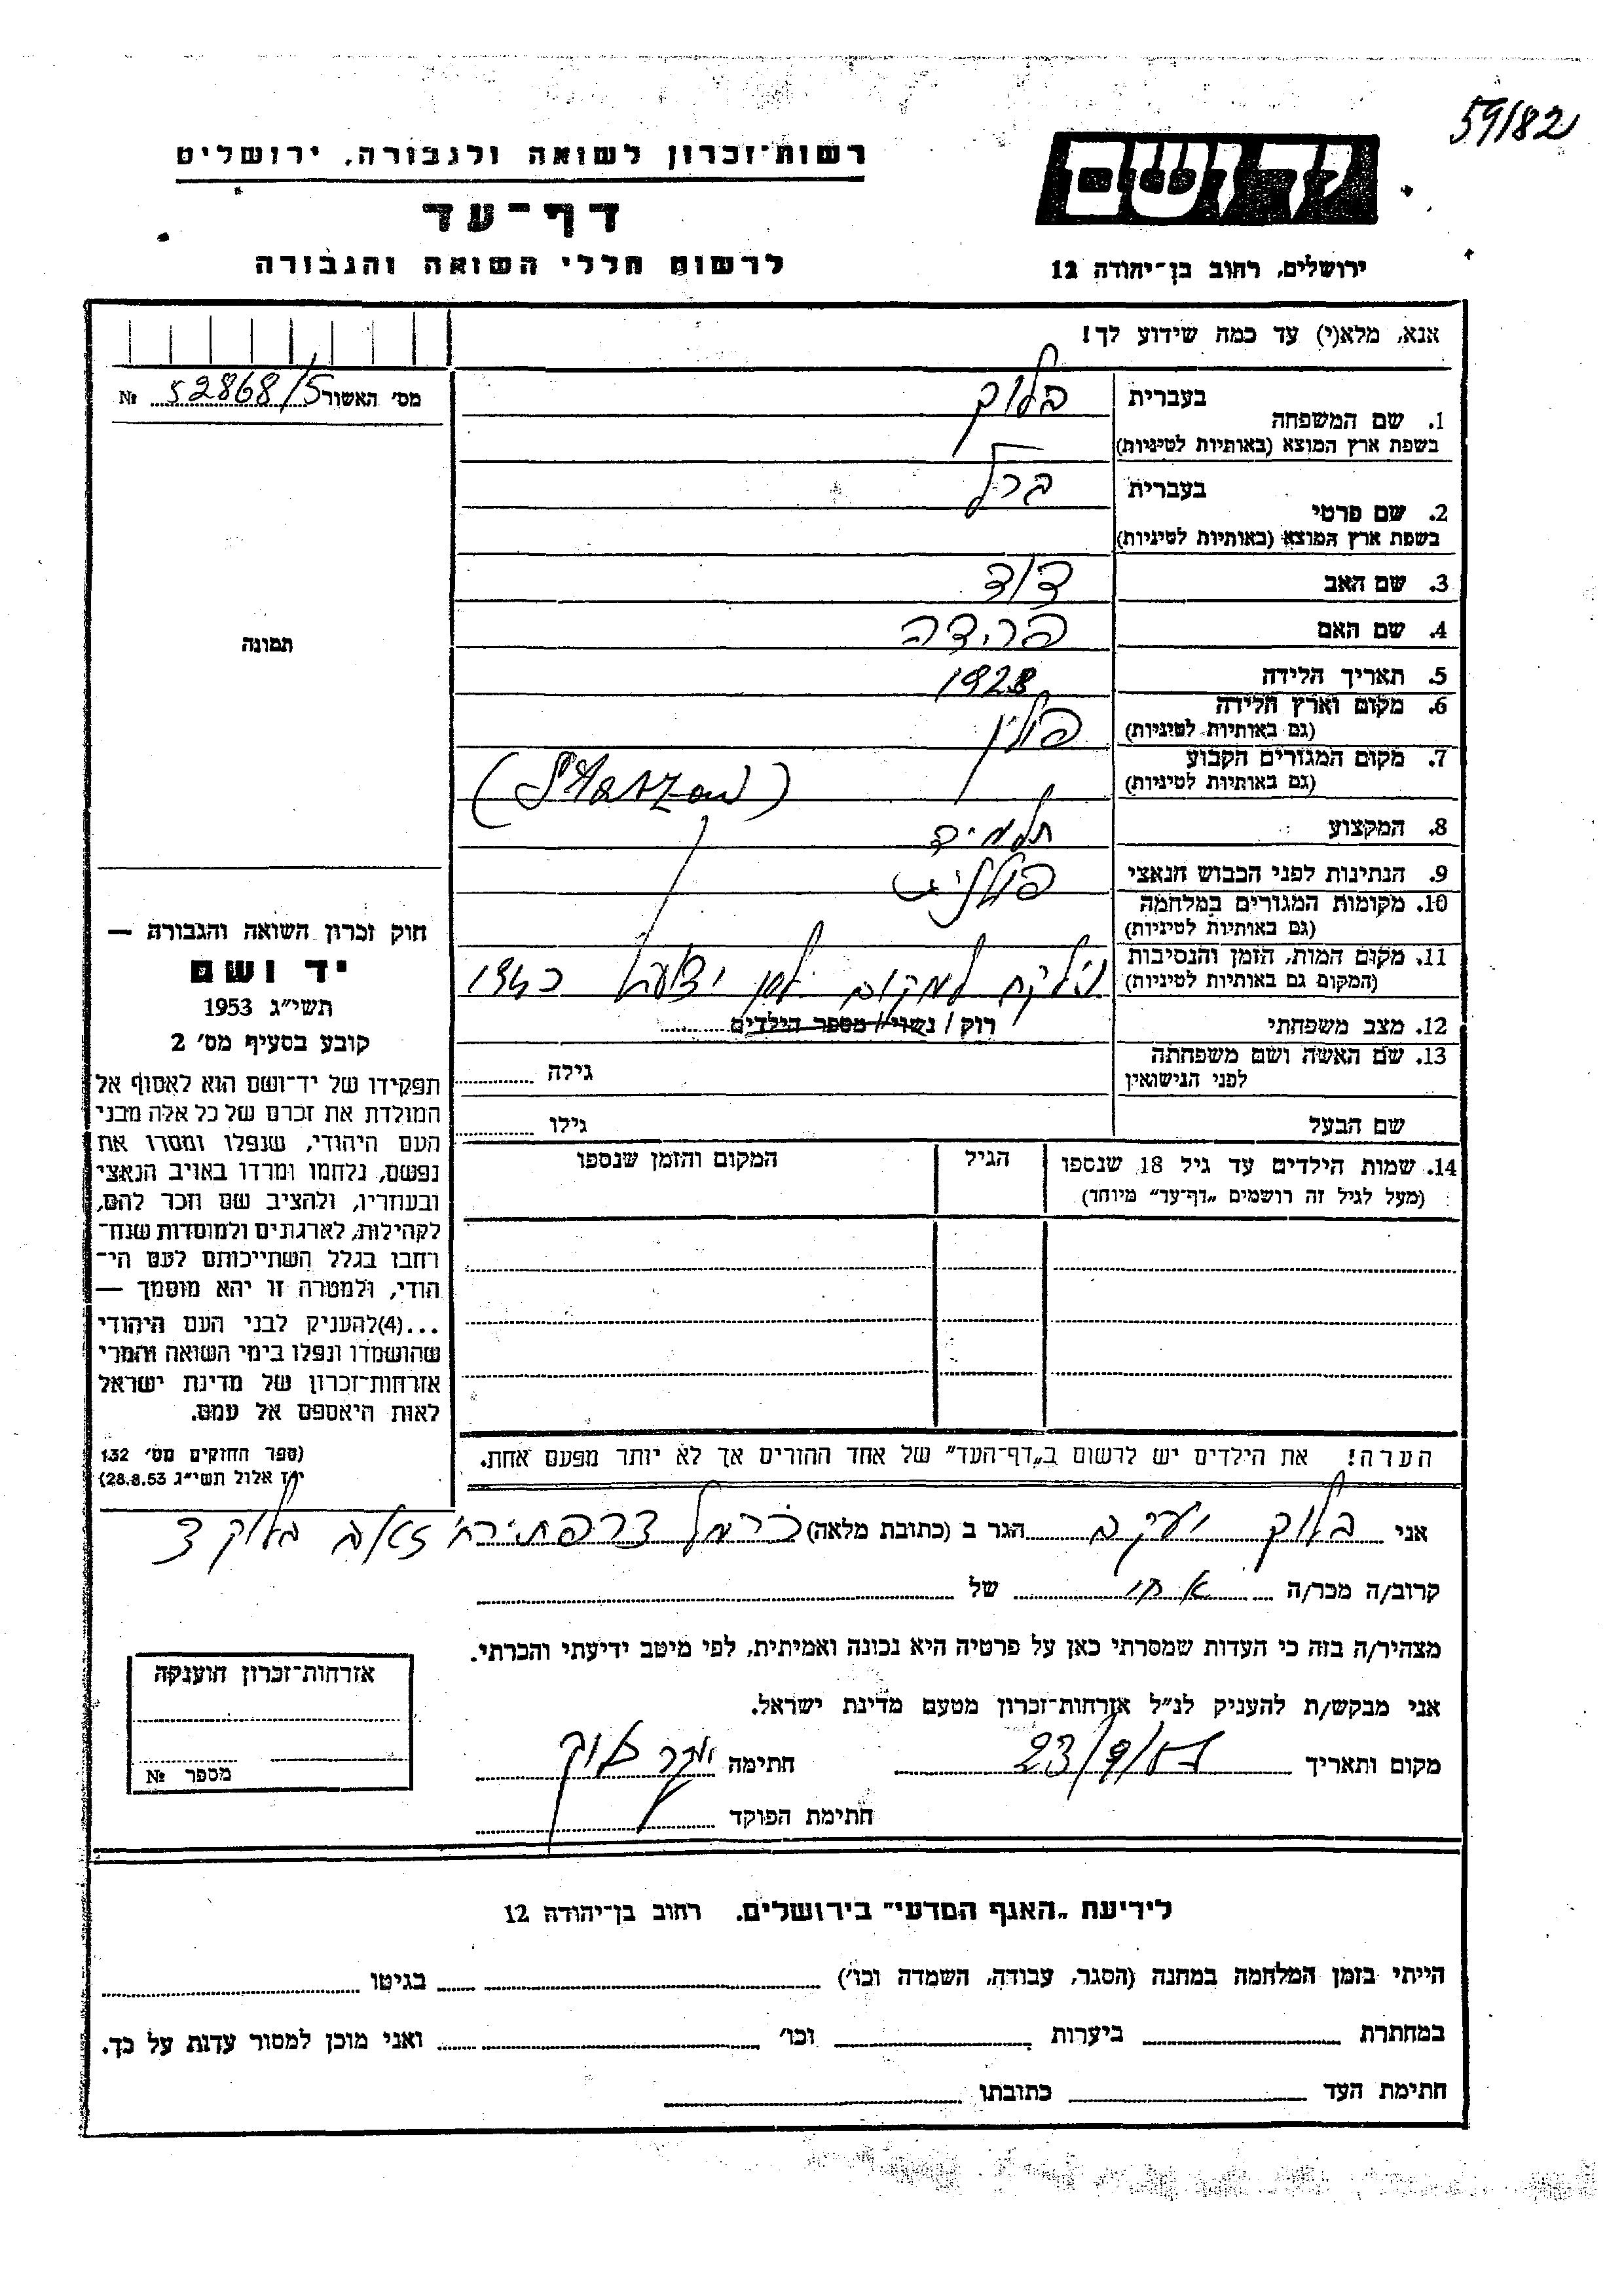 59/82
רשות־זכרון לשואה ולגבורה, ירושלים
יד ושם
דף־עד
לרשום חללי השואה והגבורה
ירושלים, רחוב בן־יהודה 12
אנא, מלא(י) עד כמה שידוע לך!
מס׳ האשור 52868/5 №
בעברית בלוך
1. שם המשפחה
בשפת ארץ המוצא (באותיות לטיניות)
בעברית ברל
2. שם פרטי
בשפת ארץ המוצא (באותיות לטיניות)
3. שם האב דוד
4. שם האם פרידה
5. תאריך הלידה 1928
6. מקום וארץ הלידה פולין
(גם באותיות לטיניות)
7. מקום המגורים הקבוע
(גם באותיות לטיניות)
8. המקצוע תלמיד
9. הנתינות לפני הכבוש הנאצי פולנית
10. מקומות המגורים במלחמה
(גם באותיות לטיניות)
11. מקום המות, הזמן והנסיבות נילקח למקום לא ידוע ב 1943
(המקום גם באותיות לטיניות)
12. מצב משפחתי רוק / נשוי / מספר הילדים
13. שם האשה ושם משפחתה גילה
לפני הנישואין
שם הבעל גילו
14. שמות הילדים עד גיל 18 שנספו הגיל המקום והזמן שנספו
(מעל לגיל זה רושמים „דף־עד״ מיוחד)
הערה! את הילדים יש לרשום ב„דף־העד״ של אחד ההורים אך לא יותר מפעם אחת.
תמונה
חוק זכרון השואה והגבורה —
יד ושם
תשי״ג 1953
קובע בסעיף מס׳ 2
תפקידו של יד־ושם הוא לאסוף אל
המולדת את זכרם של כל אלה מבני
העם היהודי, שנפלו ומסרו את
נפשם, נלחמו ומרדו באויב הנאצי
ובעוזריו, ולהציב שם וזכר להם,
לקהילות, לארגונים ולמוסדות שנח־
רבו בגלל השתייכותם לעם הי־
הודי, ולמטרה זו יהא מוסמך —
...(4) להעניק לבני העם היהודי
שהושמדו ונפלו בימי השואה והמרי
אזרחות־זכרון של מדינת ישראל
לאות היאספם אל עמם.
(ספר החוקים מס׳ 132
י״ז אלול תשי״ג 28.8.53)
אני בלוך יעקב הגר ב (כתובת מלאה) כרמל צרפתי רח׳
קרוב/ה מכר/ה אחי של
מצהיר/ה בזה כי העדות שמסרתי כאן על פרטיה היא נכונה ואמיתית, לפי מיטב ידיעתי והכרתי.
אני מבקש/ת להעניק לנ״ל אזרחות־זכרון מטעם מדינת ישראל.
מקום ותאריך 23/9/ חתימה יעקב בלוך
חתימת הפוקד
אזרחות־זכרון הוענקה
מספר №
לידיעת „האגף המדעי״ בירושלים. רחוב בן־יהודה 12
הייתי בזמן המלחמה במחנה (הסגר, עבודה, השמדה וכו׳) בגיטו
במחתרת ביערות וכו׳ ואני מוכן למסור עדות על כך.
חתימת העד כתובתו